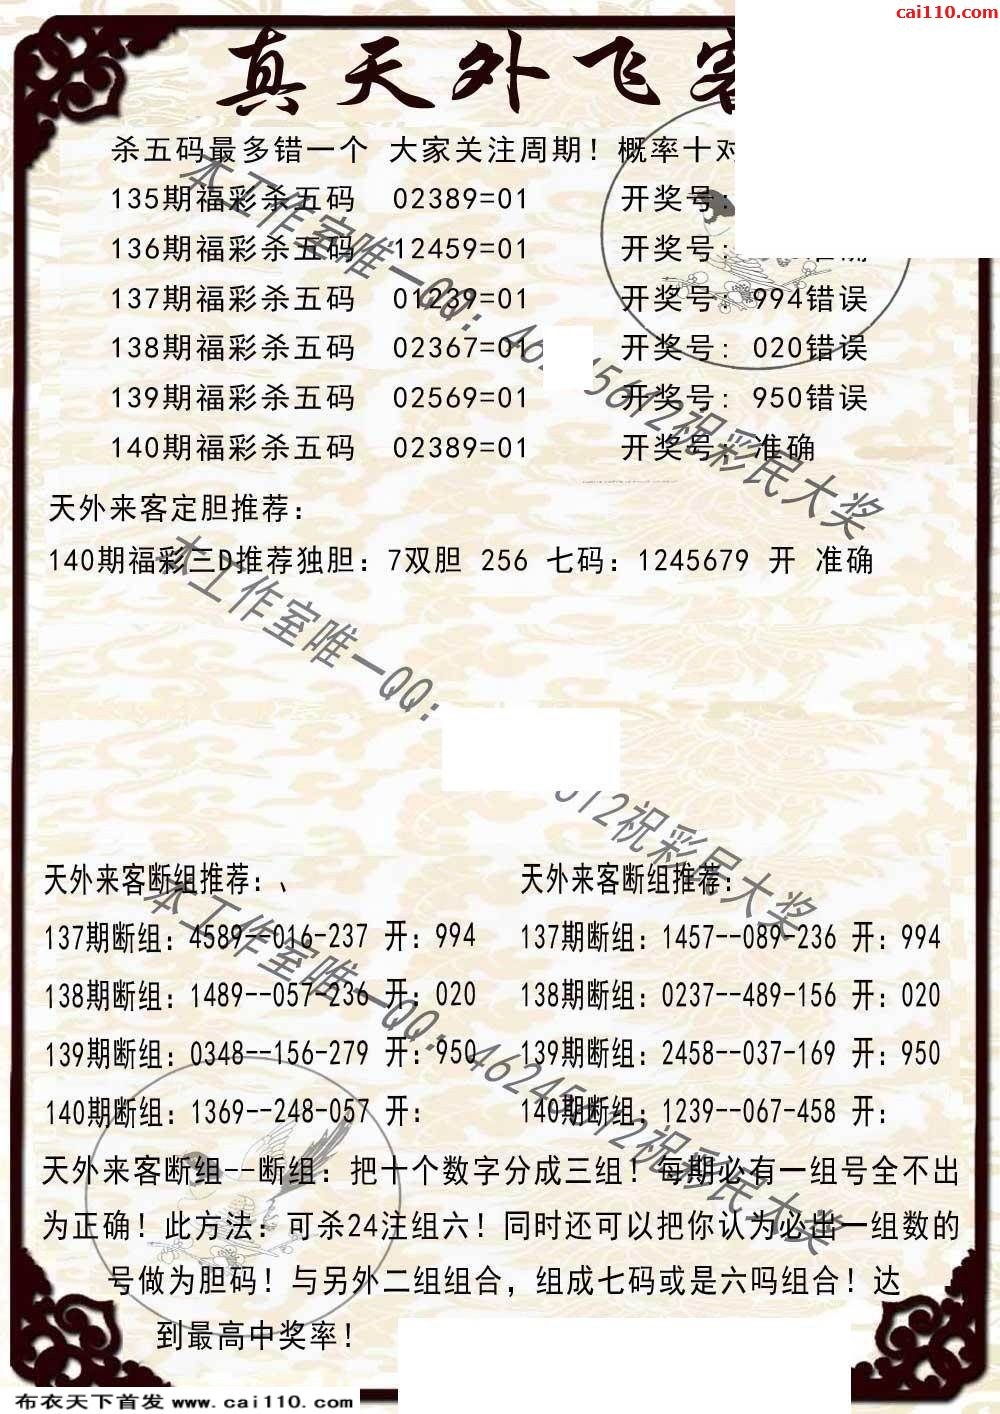 cai110.com
真天外飞
杀五码最多错一个 大家关注周期！概率十对
135期福彩杀五码 02389=01 开奖号:
136期福彩杀五码 12459=01 开奖号:
137期福彩杀五码 01239=01 开奖号: 994错误
138期福彩杀五码 02367=01 开奖号: 020错误
139期福彩杀五码 02569=01 开奖号: 950错误
140期福彩杀五码 02389=01 开奖号: 准确
本工作室唯一QQ: 46 45612祝彩民大奖
天外来客定胆推荐:
140期福彩三D推荐独胆: 7双胆 256 七码: 1245679 开 准确
本工作室唯一QQ: 612祝彩民大奖
天外来客断组推荐: 、 天外来客断组推荐:
137期断组: 4589--016-237 开: 994 137期断组: 1457--089-236 开: 994
138期断组: 1489--057-236 开: 020 138期断组: 0237--489-156 开: 020
139期断组: 0348--156-279 开: 950 139期断组: 2458--037-169 开: 950
140期断组: 1369--248-057 开: 140期断组: 1239--067-458 开:
本工作室唯一QQ: 46245612祝彩民大奖
天外来客断组--断组: 把十个数字分成三组！每期必有一组号全不出
为正确！此方法: 可杀24注组六！同时还可以把你认为必出一组数的
号做为胆码！与另外二组组合，组成七码或是六吗组合！达
到最高中奖率！
布衣天下首发 www.cai110.com